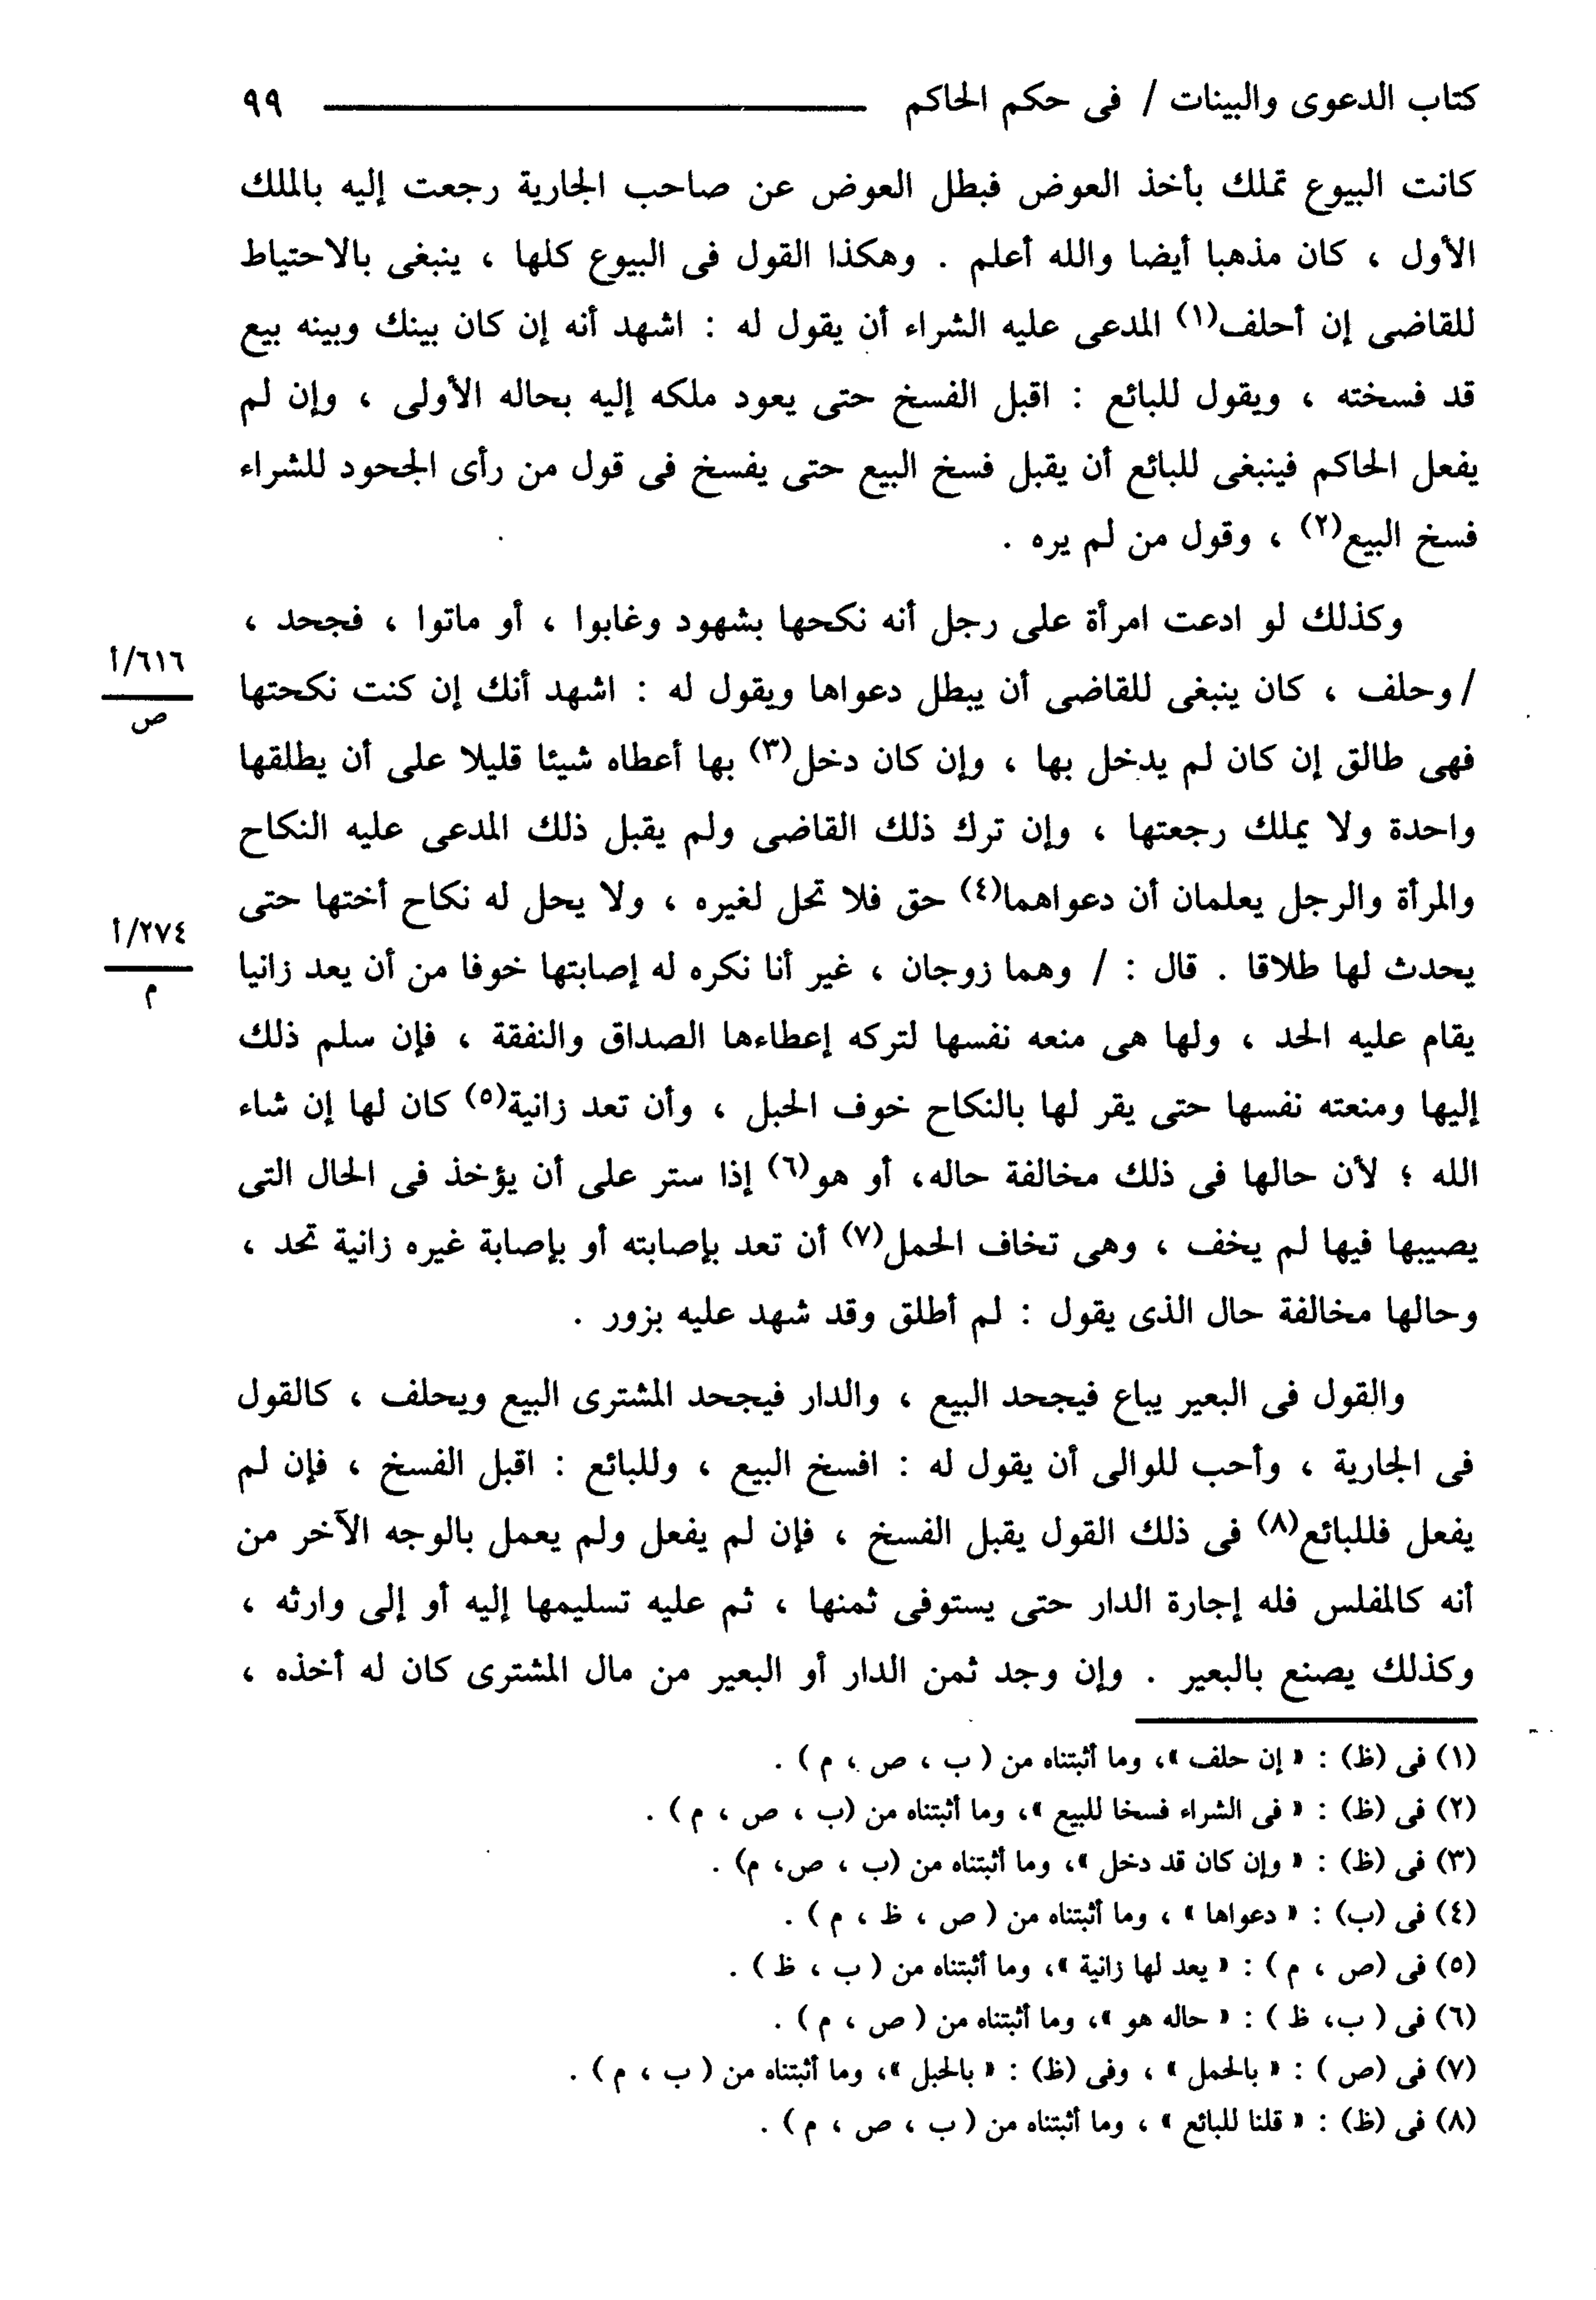 كتاب الدعوى والبينات / فى حكم الحاكم ٩٩
كانت البيوع تملك بأخذ العوض فبطل العوض عن صاحب الجارية رجعت إليه بالملك
الأول ، كان مذهبا أيضا والله أعلم . وهكذا القول فى البيوع كلها ، ينبغى بالاحتياط
للقاضى إن أحلف(١) المدعى عليه الشراء أن يقول له : اشهد أنه إن كان بينك وبينه بيع
قد فسخته ، ويقول للبائع : اقبل الفسخ حتى يعود ملكه إليه بحاله الأولى ، وإن لم
يفعل الحاكم فينبغى للبائع أن يقبل فسخ البيع حتى يفسخ فى قول من رأى الجحود للشراء
فسخ البيع(٢) ، وقول من لم يره .
وكذلك لو ادعت امرأة على رجل أنه نكحها بشهود وغابوا ، أو ماتوا ، فجحد ،
٦١٦/أ
/ وحلف ، كان ينبغى للقاضى أن يبطل دعواها ويقول له : اشهد أنك إن كنت نكحتها
ص
فهى طالق إن كان لم يدخل بها ، وإن كان دخل(٣) بها أعطاه شيئا قليلا على أن يطلقها
واحدة ولا يملك رجعتها ، وإن ترك ذلك القاضى ولم يقبل ذلك المدعى عليه النكاح
والمرأة والرجل يعلمان أن دعواهما(٤) حق فلا تحل لغيره ، ولا يحل له نكاح أختها حتى
٢٧٤/أ
يحدث لها طلاقا . قال : / وهما زوجان ، غير أنا نكره له إصابتها خوفا من أن يعد زانيا
م
يقام عليه الحد ، ولها هى منعه نفسها لتركه إعطاءها الصداق والنفقة ، فإن سلم ذلك
إليها ومنعته نفسها حتى يقر لها بالنكاح خوف الحبل ، وأن تعد زانية(٥) كان لها إن شاء
الله ؛ لأن حالها فى ذلك مخالفة حاله، أو هو(٦) إذا ستر على أن يؤخذ فى الحال التى
يصيبها فيها لم يخف ، وهى تخاف الحمل(٧) أن تعد بإصابته أو بإصابة غيره زانية تحد ،
وحالها مخالفة حال الذى يقول : لم أطلق وقد شهد عليه بزور .
والقول فى البعير يباع فيجحد البيع ، والدار فيجحد المشترى البيع ويحلف ، كالقول
فى الجارية ، وأحب للوالى أن يقول له : افسخ البيع ، وللبائع : اقبل الفسخ ، فإن لم
يفعل فللبائع(٨) فى ذلك القول يقبل الفسخ ، فإن لم يفعل ولم يعمل بالوجه الآخر من
أنه كالمفلس فله إجارة الدار حتى يستوفى ثمنها ، ثم عليه تسليمها إليه أو إلى وارثه ،
وكذلك يصنع بالبعير . وإن وجد ثمن الدار أو البعير من مال المشترى كان له أخذه ،
(١) فى (ظ) : « إن حلف »، وما أثبتناه من ( ب ، ص ، م ) .
(٢) فى (ظ) : « فى الشراء فسخا للبيع »، وما أثبتناه من (ب ، ص ، م ) .
(٣) فى (ظ) : « وإن كان قد دخل »، وما أثبتناه من (ب ، ص، م) .
(٤) فى (ب) : « دعواها » ، وما أثبتناه من ( ص ، ظ ، م ) .
(٥) فى (ص ، م ) : « يعد لها زانية »، وما أثبتناه من ( ب ، ظ ) .
(٦) فى ( ب، ظ ) : « حاله هو »، وما أثبتناه من ( ص ، م ) .
(٧) فى (ص ) : « بالحمل » ، وفى (ظ) : « بالحبل »، وما أثبتناه من ( ب ، م ) .
(٨) فى (ظ) : « قلنا للبائع » ، وما أثبتناه من ( ب ، ص ، م ) .